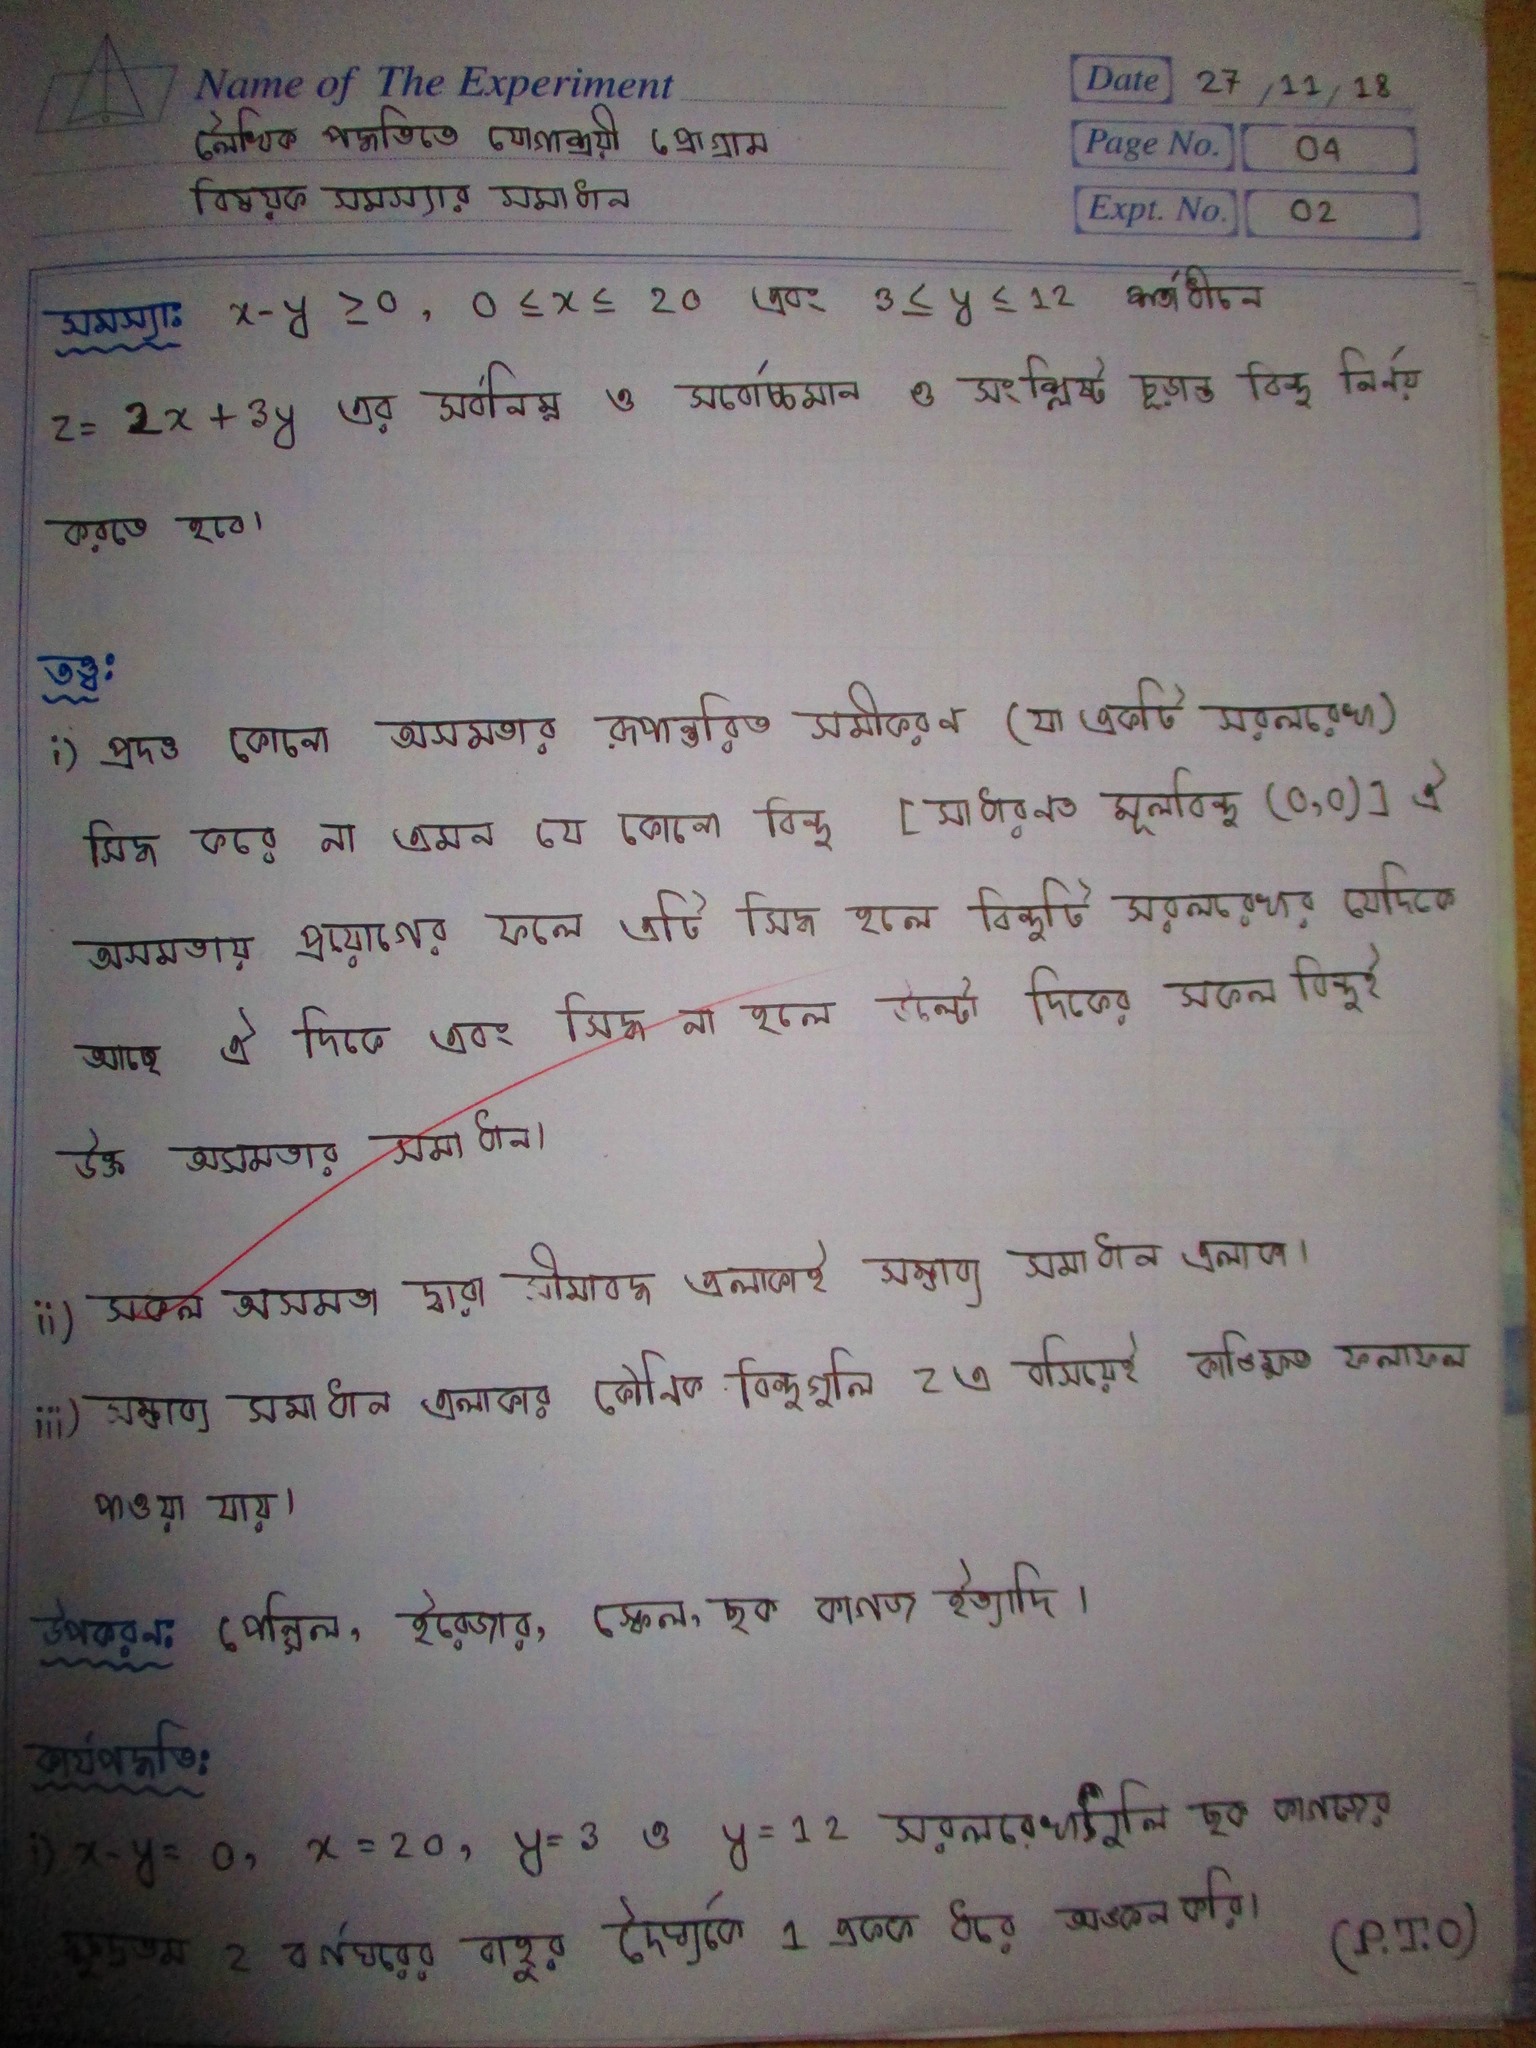 Name of The Experiment
Date 27/11/18
লৈখিক পদ্ধতিতে যোগাশ্রয়ী প্রোগ্রাম
Page No. 04
বিষয়ক সমস্যার সমাধান
Expt. No. 02
সমস্যাঃ x-y ≥0, 0 ≤ x ≤ 20 এবং 3 ≤ y ≤ 12 শর্তাধীনে
z = 2x + 3y এর সর্বনিম্ন ও সর্বোচ্চমান ও সংশ্লিষ্ট চূড়ান্ত বিন্দু নির্নয়
করতে হবে।
তত্ত্বঃ
i) প্রদত্ত কোনো অসমতার রূপান্তরিত সমীকরন (যা একটি সরলরেখা)
সিদ্ধ করে না এমন যে কোনো বিন্দু [সাধারনত মূলবিন্দু (0,0)] ঐ
অসমতায় প্রয়োগের ফলে এটি সিদ্ধ হলে বিন্দুটি সরলরেখার যেদিকে
আছে ঐ দিকে এবং সিদ্ধ না হলে উল্টো দিকের সকল বিন্দুই
উক্ত অসমতার সমাধান।
ii) সকল অসমতা দ্বারা সীমাবদ্ধ এলাকাই সম্ভাব্য সমাধান এলাকা।
iii) সম্ভাব্য সমাধান এলাকার কৌনিক বিন্দুগুলি z এ বসিয়েই কাঙ্ক্ষিত ফলাফল
পাওয়া যায়।
উপকরনঃ পেন্সিল, ইরেজার, স্কেল, ছক কাগজ ইত্যাদি।
কার্যপদ্ধতিঃ
i) x-y= 0, x = 20, y= 3 ও y = 12 সরলরেখাগুলি ছক কাগজের
ক্ষুদ্রতম 2 বর্গঘরের বাহুর দৈর্ঘ্যকে 1 একক ধরে অঙ্কন করি।
(P.T.O)